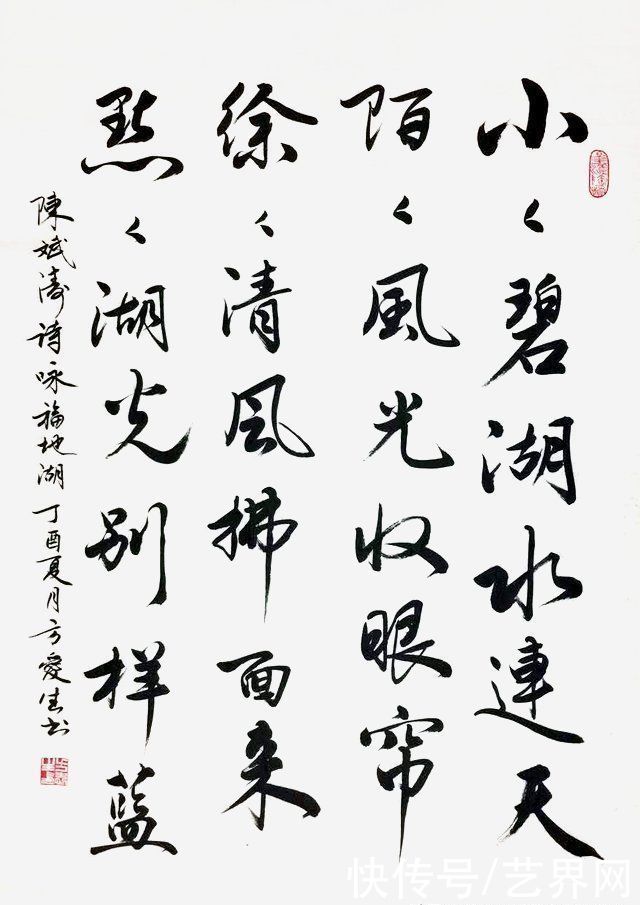 小〻碧湖水連天
陌〻風光收眼帘
徐〻清风拂面来
點〻湖光别样藍
陳斌涛诗咏福地湖丁酉夏月方爱生书
快传号/艺界网